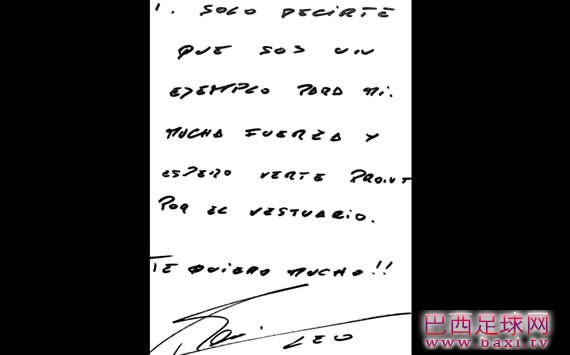 1. SOLO DECIRTE
QUE SOS UN
EJEMPLO PARA MI.
MUCHA FUERZA Y
ESPERO VERTE PRONT
POR EL VESTUARIO.
TE QUIERO MUCHO!!
LEO
巴西足球网
www.baxi.tv